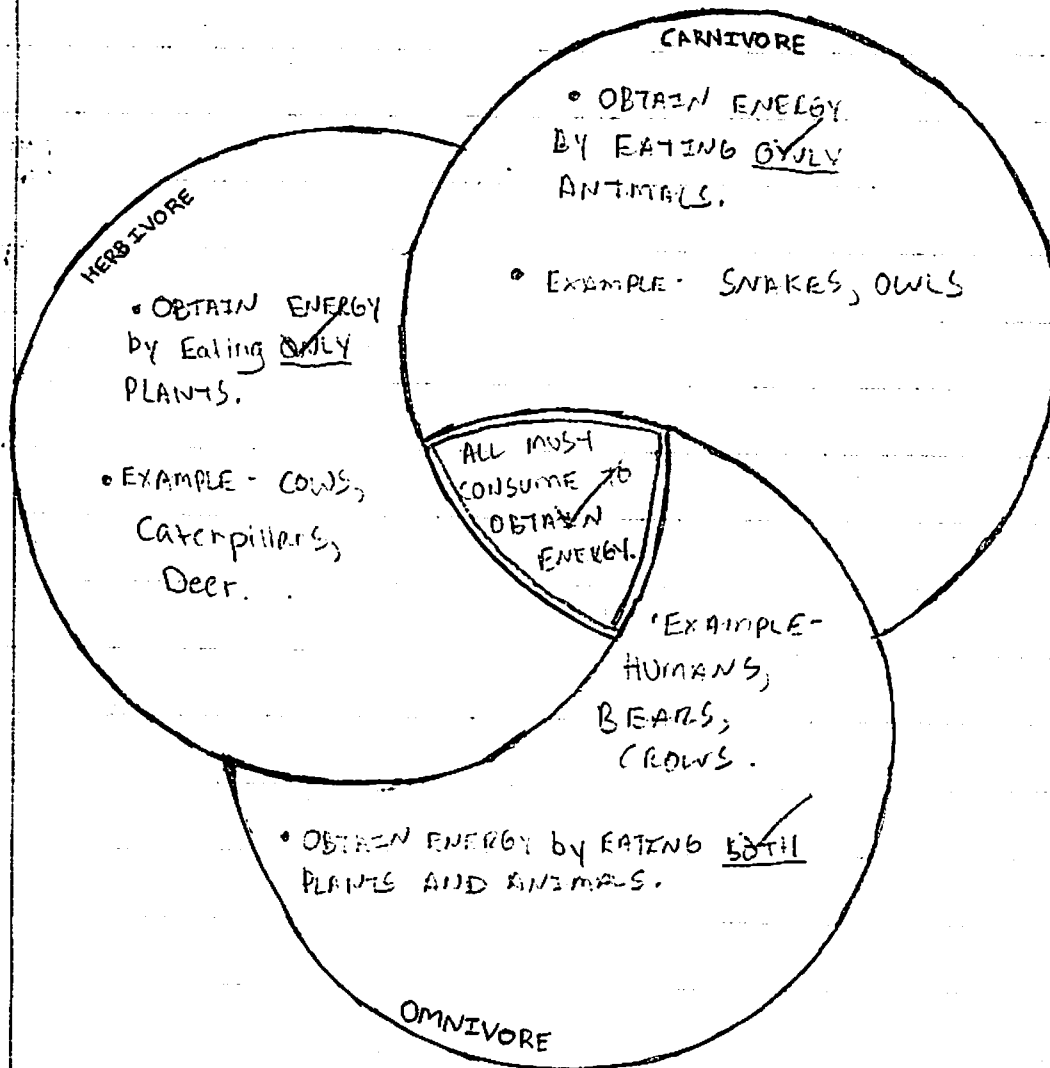 CARNIVORE
• OBTAIN ENERGY
BY EATING ONLY
ANIMALS.
• EXAMPLE - SNAKES, OWLS
HERBIVORE
• OBTAIN ENERGY
by Eating ONLY
PLANTS.
• EXAMPLE - COWS,
Caterpillars,
Deer.
ALL MUST
CONSUME TO
OBTAIN
ENERGY.
• EXAMPLE -
HUMANS,
BEARS,
CROWS.
• OBTAIN ENERGY by EATING BOTH
PLANTS AND ANIMALS.
OMNIVORE